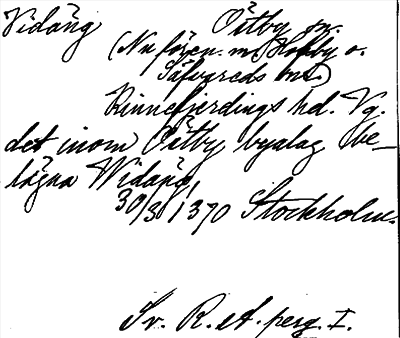 Vidäng Ottby sn.
(Nu fören. m. Hofby o.
Säfvareds sn.)
Kinnefjerdings hd. Vg.
det inom Ottby byalag be-
lägna Widäng,
30/3 1370 Stockholm.
Sv. R. A. perg. I.